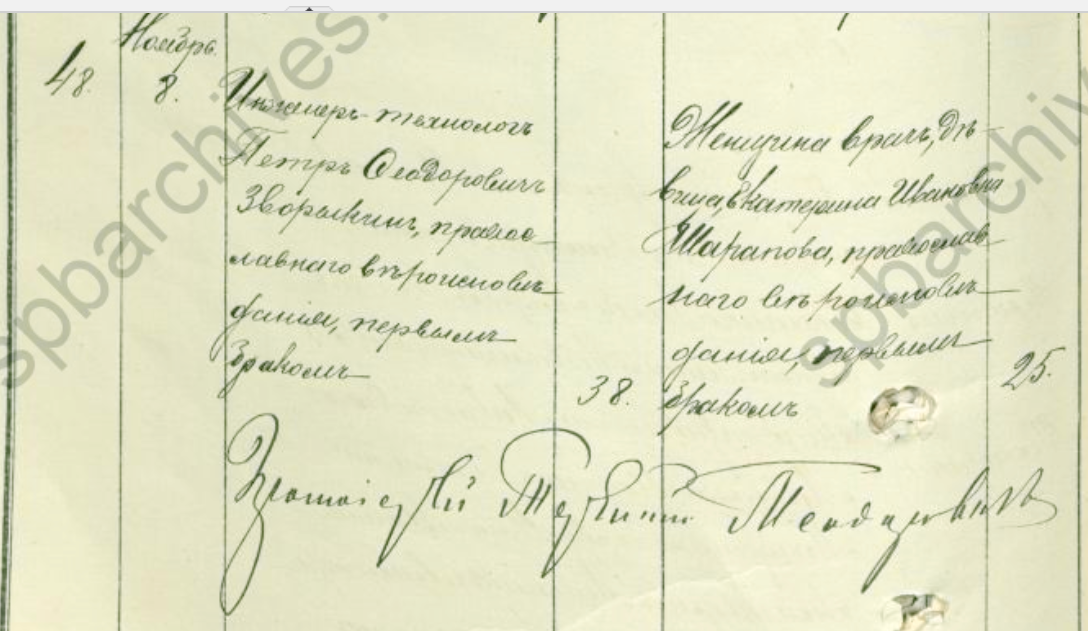 Ноябрь.
48.
8.
Инженеръ-технологъ
Петръ Ѳеодоровичъ
Зворыкинъ, правос-
лавнаго вѣроисповѣ-
данія, первымъ
бракомъ
38.
Женщина врачъ, дѣ-
вица, Екатерина Ивановна
Шарапова, православ-
наго вѣроисповѣ-
данія, первымъ
бракомъ
25.
Протоіерей
spbarchives.
spbarchiv